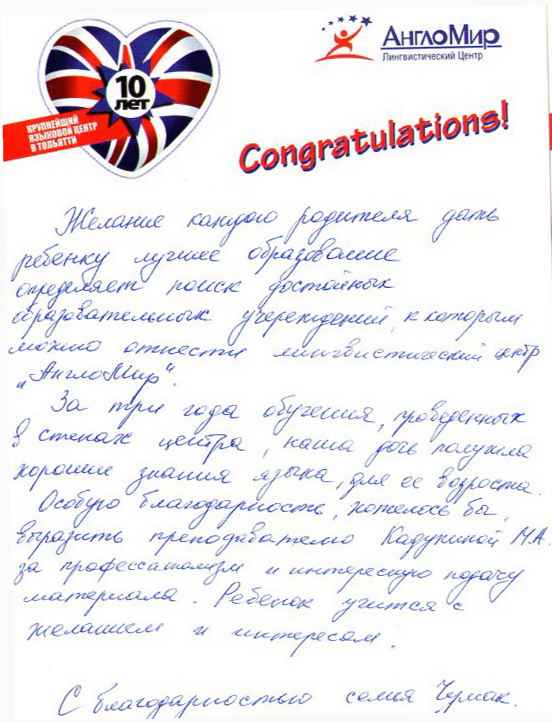 10
лет
КРУПНЕЙШИЙ
ЯЗЫКОВОЙ ЦЕНТР
В ТОЛЬЯТТИ
АнглоМир
Лингвистический Центр
Congratulations!
Желание каждого родителя дать
ребенку лучшее образование
определяет поиск достойных
образовательных учереждений, к которым
можно отнести лингвистический центр
„АнглоМир".
За три года обучения, проведенных
в стенах центра, наша дочь получила
хорошие знания языка, для ее возраста.
Особую благодарность, хотелось бы,
выразить преподавателю Кадукиной М.А.
за профессионализм и интересную подачу
материала. Ребенок учится с
желанием и интересом.
С благодарностью семья Чумак.